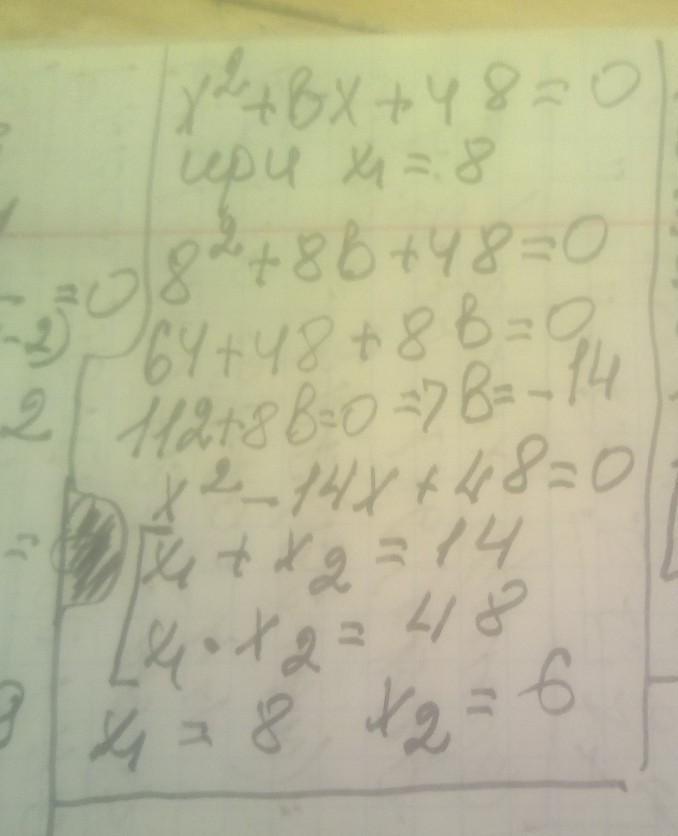 x² + вx + 48 = 0
при x₁ = 8
8² + 8в + 48 = 0
64 + 48 + 8в = 0
112 + 8в = 0 => в = -14
x² - 14x + 48 = 0
[x₁ + x₂ = 14
x₁ · x₂ = 48
x₁ = 8 x₂ = 6
= 0
-2)
2
=